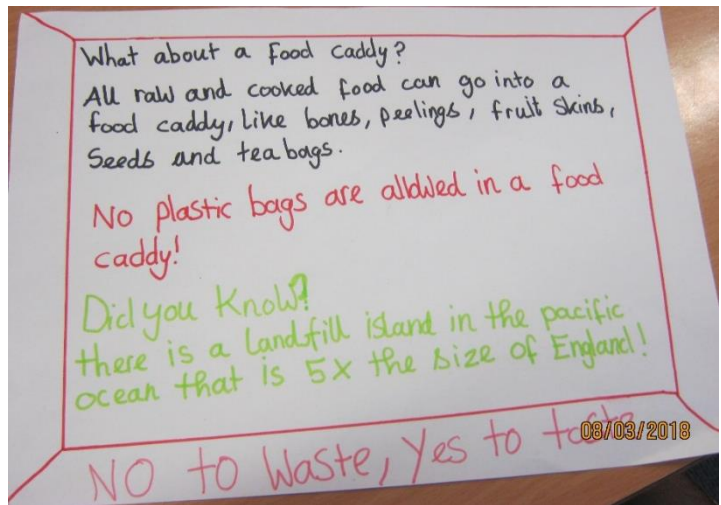 What about a food caddy?
All raw and cooked food can go into a
food caddy, like bones, peelings, fruit skins,
Seeds and tea bags.
No plastic bags are allowed in a food
caddy!
Did you Know?
there is a landfill island in the pacific
ocean that is 5x the size of England!
NO to Waste, Yes to taste
08/03/2018